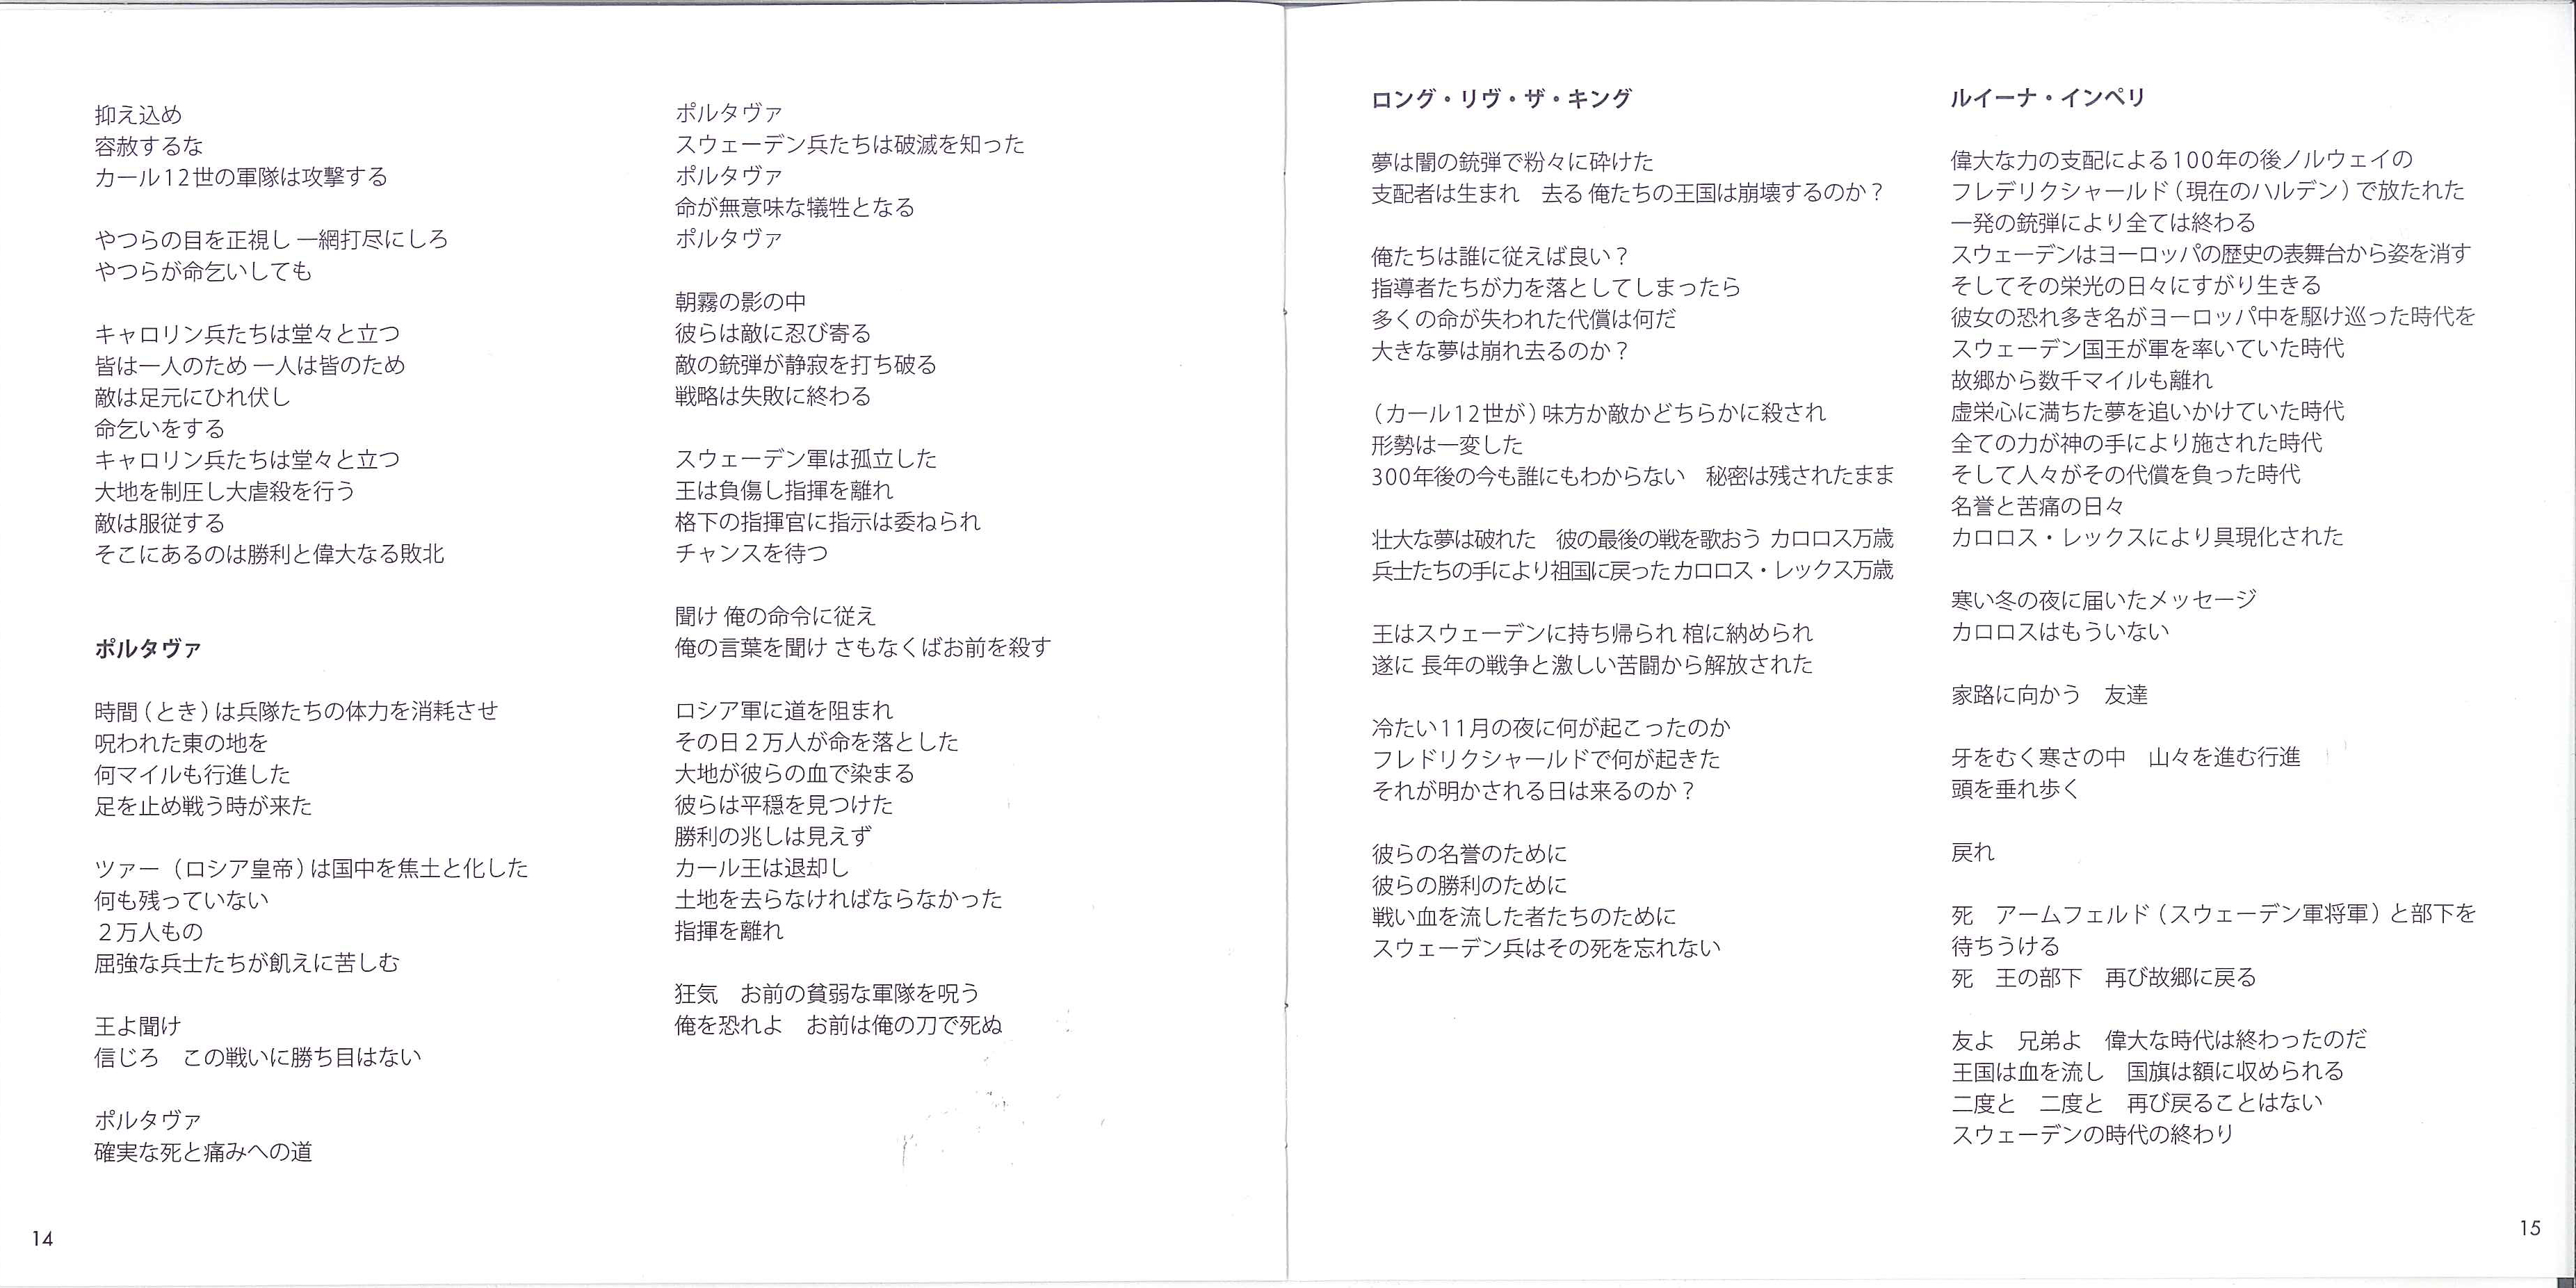 抑え込め
容赦するな
カール12世の軍隊は攻撃する
やつらの目を正視し 一網打尽にしろ
やつらが命乞いしても
キャロリン兵たちは堂々と立つ
皆は一人のため 一人は皆のため
敵は足元にひれ伏し
命乞いをする
キャロリン兵たちは堂々と立つ
大地を制圧し大虐殺を行う
敵は服従する
そこにあるのは勝利と偉大なる敗北
ポルタヴァ
時間（とき）は兵隊たちの体力を消耗させ
呪われた東の地を
何マイルも行進した
足を止め戦う時が来た
ツァー（ロシア皇帝）は国中を焦土と化した
何も残っていない
２万人もの
屈強な兵士たちが飢えに苦しむ
王よ聞け
信じろ　この戦いに勝ち目はない
ポルタヴァ
確実な死と痛みへの道
14
ポルタヴァ
スウェーデン兵たちは破滅を知った
ポルタヴァ
命が無意味な犠牲となる
ポルタヴァ
朝霧の影の中
彼らは敵に忍び寄る
敵の銃弾が静寂を打ち破る
戦略は失敗に終わる
スウェーデン軍は孤立した
王は負傷し指揮を離れ
格下の指揮官に指示は委ねられ
チャンスを待つ
聞け 俺の命令に従え
俺の言葉を聞け さもなくばお前を殺す
ロシア軍に道を阻まれ
その日２万人が命を落とした
大地が彼らの血で染まる
彼らは平穏を見つけた
勝利の兆しは見えず
カール王は退却し
土地を去らなければならなかった
指揮を離れ
狂気　お前の貧弱な軍隊を呪う
俺を恐れよ　お前は俺の刀で死ぬ
ロング・リヴ・ザ・キング
夢は闇の銃弾で粉々に砕けた
支配者は生まれ　去る 俺たちの王国は崩壊するのか？
俺たちは誰に従えば良い？
指導者たちが力を落としてしまったら
多くの命が失われた代償は何だ
大きな夢は崩れ去るのか？
（カール12世が）味方か敵かどちらかに殺され
形勢は一変した
300年後の今も誰にもわからない　秘密は残されたまま
壮大な夢は破れた　彼の最後の戦を歌おう カロロス万歳
兵士たちの手により祖国に戻った カロロス・レックス万歳
王はスウェーデンに持ち帰られ 棺に納められ
遂に 長年の戦争と激しい苦闘から解放された
冷たい11月の夜に何が起こったのか
フレドリクシャールドで何が起きた
それが明かされる日は来るのか？
彼らの名誉のために
彼らの勝利のために
戦い血を流した者たちのために
スウェーデン兵はその死を忘れない
ルイーナ・インペリ
偉大な力の支配による100年の後ノルウェイの
フレデリクシャールド（現在のハルデン）で放たれた
一発の銃弾により全ては終わる
スウェーデンはヨーロッパの歴史の表舞台から姿を消す
そしてその栄光の日々にすがり生きる
彼女の恐れ多き名がヨーロッパ中を駆け巡った時代を
スウェーデン国王が軍を率いていた時代
故郷から数千マイルも離れ
虚栄心に満ちた夢を追いかけていた時代
全ての力が神の手により施された時代
そして人々がその代償を負った時代
名誉と苦痛の日々
カロロス・レックスにより具現化された
寒い冬の夜に届いたメッセージ
カロロスはもういない
家路に向かう　友達
牙をむく寒さの中　山々を進む行進
頭を垂れ歩く
戻れ
死　アームフェルド（スウェーデン軍将軍）と部下を
待ちうける
死　王の部下　再び故郷に戻る
友よ　兄弟よ　偉大な時代は終わったのだ
王国は血を流し　国旗は額に収められる
二度と　二度と　再び戻ることはない
スウェーデンの時代の終わり
15